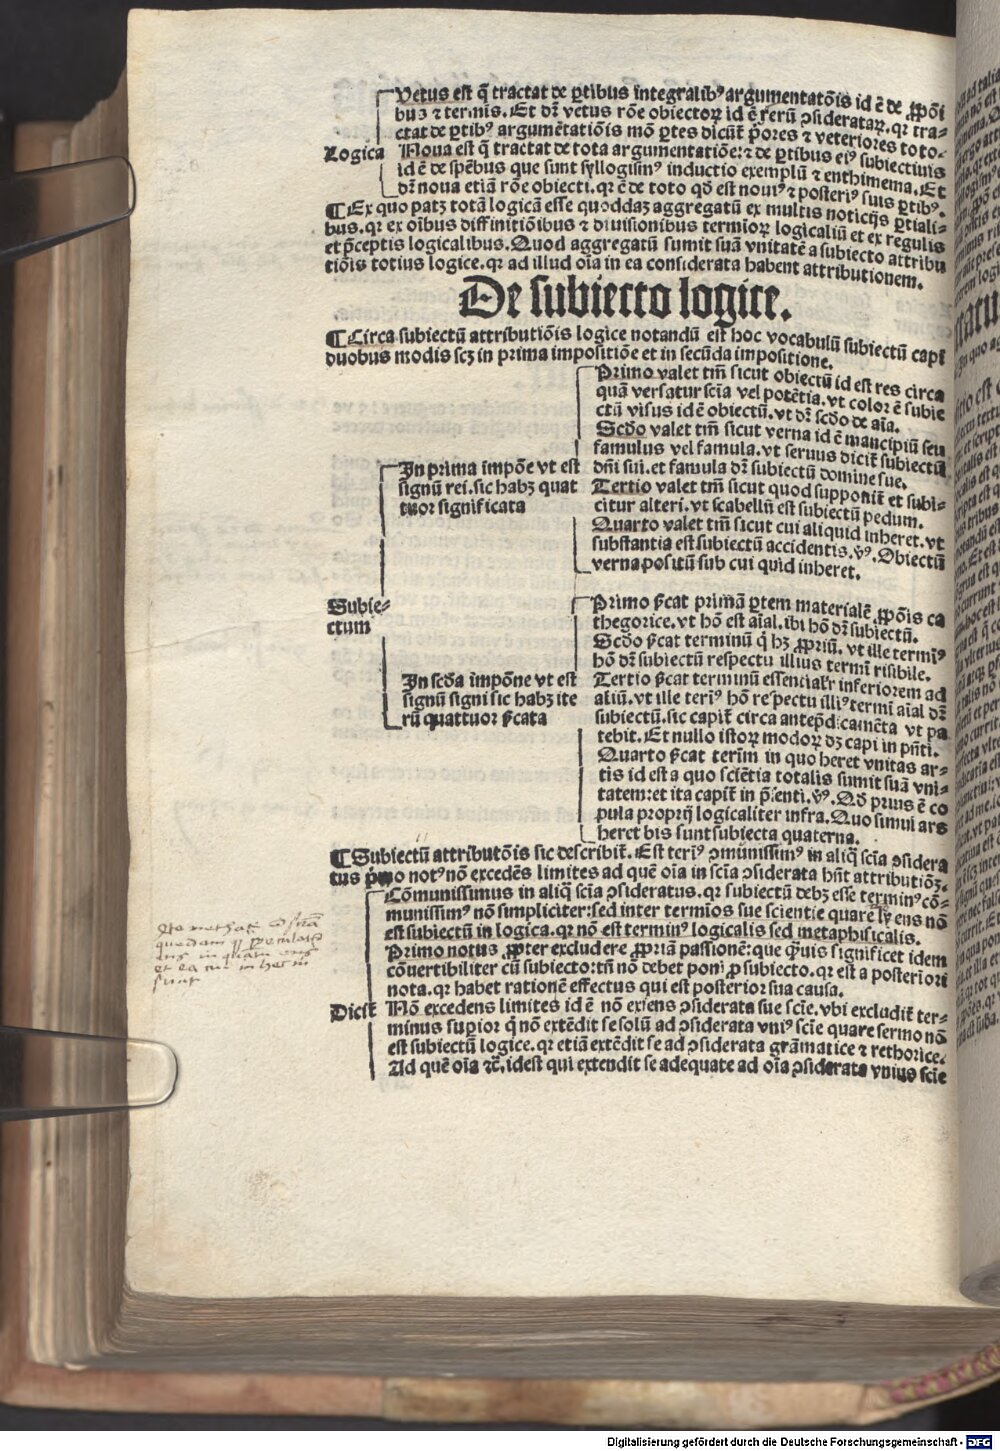 Vetus est q̃ tractat de ꝑtibus integralibꝰ argumentatõis id ẽ de ꝓpõi
bus ⁊ terminis. Et dr̃ vetus rõe obiectoꝝ id ẽ rerũ ꝯsideratarꝫ. qꝛ tra-
ctat de ꝑtibꝰ argumẽtatiõis mõ ꝑtes dicũt᷑ p̃ores ⁊ veteriores toto.
Logica Noua est q̃ tractat de tota argumentatiõe: ⁊ de ꝑtibus eiꝰ subiectiuis
id ẽ de spẽbus que sunt syllogismꝰ inductio exemplũ ⁊ enthimema. Et
dr̃ noua etiã rõe obiecti. qꝛ ẽ de toto qd̃ est nouiꝰ ⁊ posteriꝰ suis ꝑtibꝰ.
¶ Ex quo patꝫ totã logicã esse quoddaꝫ aggregatũ ex multis noticijs ꝑtiali-
bus. qꝛ ex oĩbus diffinitiõibus ⁊ diuisionibus termioꝝ logicaliũ et ex regulis
et p̃ceptis logicalibus. Quod aggregatũ sumit suã vnitatẽ a subiecto attribu
tiõis totius logice. qꝛ ad illud oĩa in ea considerata habent attributionem.
De subiecto logice.
¶ Circa subiectũ attributiõis logice notandũ est hoc vocabulũ subiectũ capi
duobus modis scꝫ in prima impositiõe et in secũda impositione.
Primo valet tm̃ sicut obiectũ id est res circa
quã versatur scĩa vel potẽtia. vt color ẽ subie
ctũ visus id ẽ obiectũ. vt dr̃ scd̃o de aĩa.
Scd̃o valet tm̃ sicut verna id ẽ mancipiũ seu
famulus vel famula. vt seruus dicit᷑ subiectũ
In prima impõe vt est dñi sui. et famula dr̃ subiectũ domine sue.
signũ rei. sic habꝫ quat Tertio valet tm̃ sicut quod supponit᷑ et subi-
tuor significata citur alteri. vt scabellũ est subiectũ pedum.
Quarto valet tm̃ sicut cui aliquid inheret. vt
substantia est subiectũ accidentis. ꝟꝰ. Obiectũ
verna positũ sub cui quid inheret.
Subie-
ctum
Primo ſ̃cat primã ꝑtem materialẽ ꝓpõis ca
thegorice. vt hõ est aĩal. ibi hõ dr̃ subiectũ.
Scd̃o ſ̃cat terminũ q̃ hꝫ ꝓpriũ. vt ille termiꝰ
hõ dr̃ subiectũ respectu illius termi risibile.
In scd̃a impõne vt est Tertio ſ̃cat terminũ essential᷑r inferiorem ad
signũ signi sic habꝫ ite aliũ. vt ille teriꝰ hõ respectu illiꝰ termi aĩal dr̃
rũ quattuor ſ̃cata subiectũ. sic capit᷑ circa antep̃dicamẽta vt pa
tebit. Et nullo istoꝝ modoꝝ dꝫ capi in pñti.
Quarto ſ̃cat terim̃ in quo heret vnitas ar-
tis id est a quo sciẽtia totalis sumit suã vni-
tatem: et ita capit᷑ in p̃senti. ꝟꝰ. Ad prius ẽ co
pula proprij logicaliter infra. Quo simul ars
heret bis sunt subiecta quaterna.
¶ Subiectũ attributõis sic describit᷑. Est teriꝰ ꝯmũnissimꝰ in aliq̃ scĩa ꝯsidera
tus p̃mo notꝰ nõ excedẽs limites ad quẽ oĩa in scĩa ꝯsiderata hñt attributiõꝫ.
Cõmunissimus in aliq̃ scĩa ꝯsideratus. qꝛ subiectũ debꝫ esse terminꝰ cõ-
munissimꝰ nõ simpliciter: sed inter termios sue scientie quare lꝫ ens nõ
est subiectũ in logica. qꝛ nõ est terminꝰ logicalis sed metaphisicalis.
Primo notus ꝓpter excludere ꝓpriã passionẽ: que q̃uis significet idem
cõuertibiliter cũ subiecto: tñ nõ debet poni ꝓ subiecto. qꝛ est a posteriori
nota. qꝛ habet rationẽ effectus qui est posterior sua causa.
Dicit᷑ Nõ excedens limites id ẽ nõ exiens ꝯsiderata sue scĩe. vbi excludit᷑ ter-
minus suꝑior q̃ nõ extẽdit se solũ ad ꝯsiderata vniꝰ scĩe quare sermo nõ
est subiectũ logice. qꝛ etiã extẽdit se ad ꝯsiderata grãmatice ⁊ rethorice.
Ad quẽ oĩa ⁊c̃. idest qui extendit se adequate ad oĩa ꝯsiderata vnius scĩe
Digitalisierung gefördert durch die Deutsche Forschungsgemeinschaft - DFG